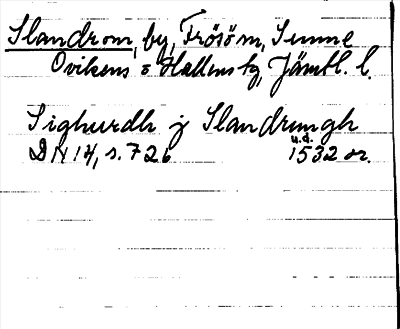 Slandrom, by, Frösöm, Sunne
Ovikens o Hallens tg, Jämtl. l.
Sighurdh j Slandrungh
DN 14, s. 726 u.d. 1532 or.